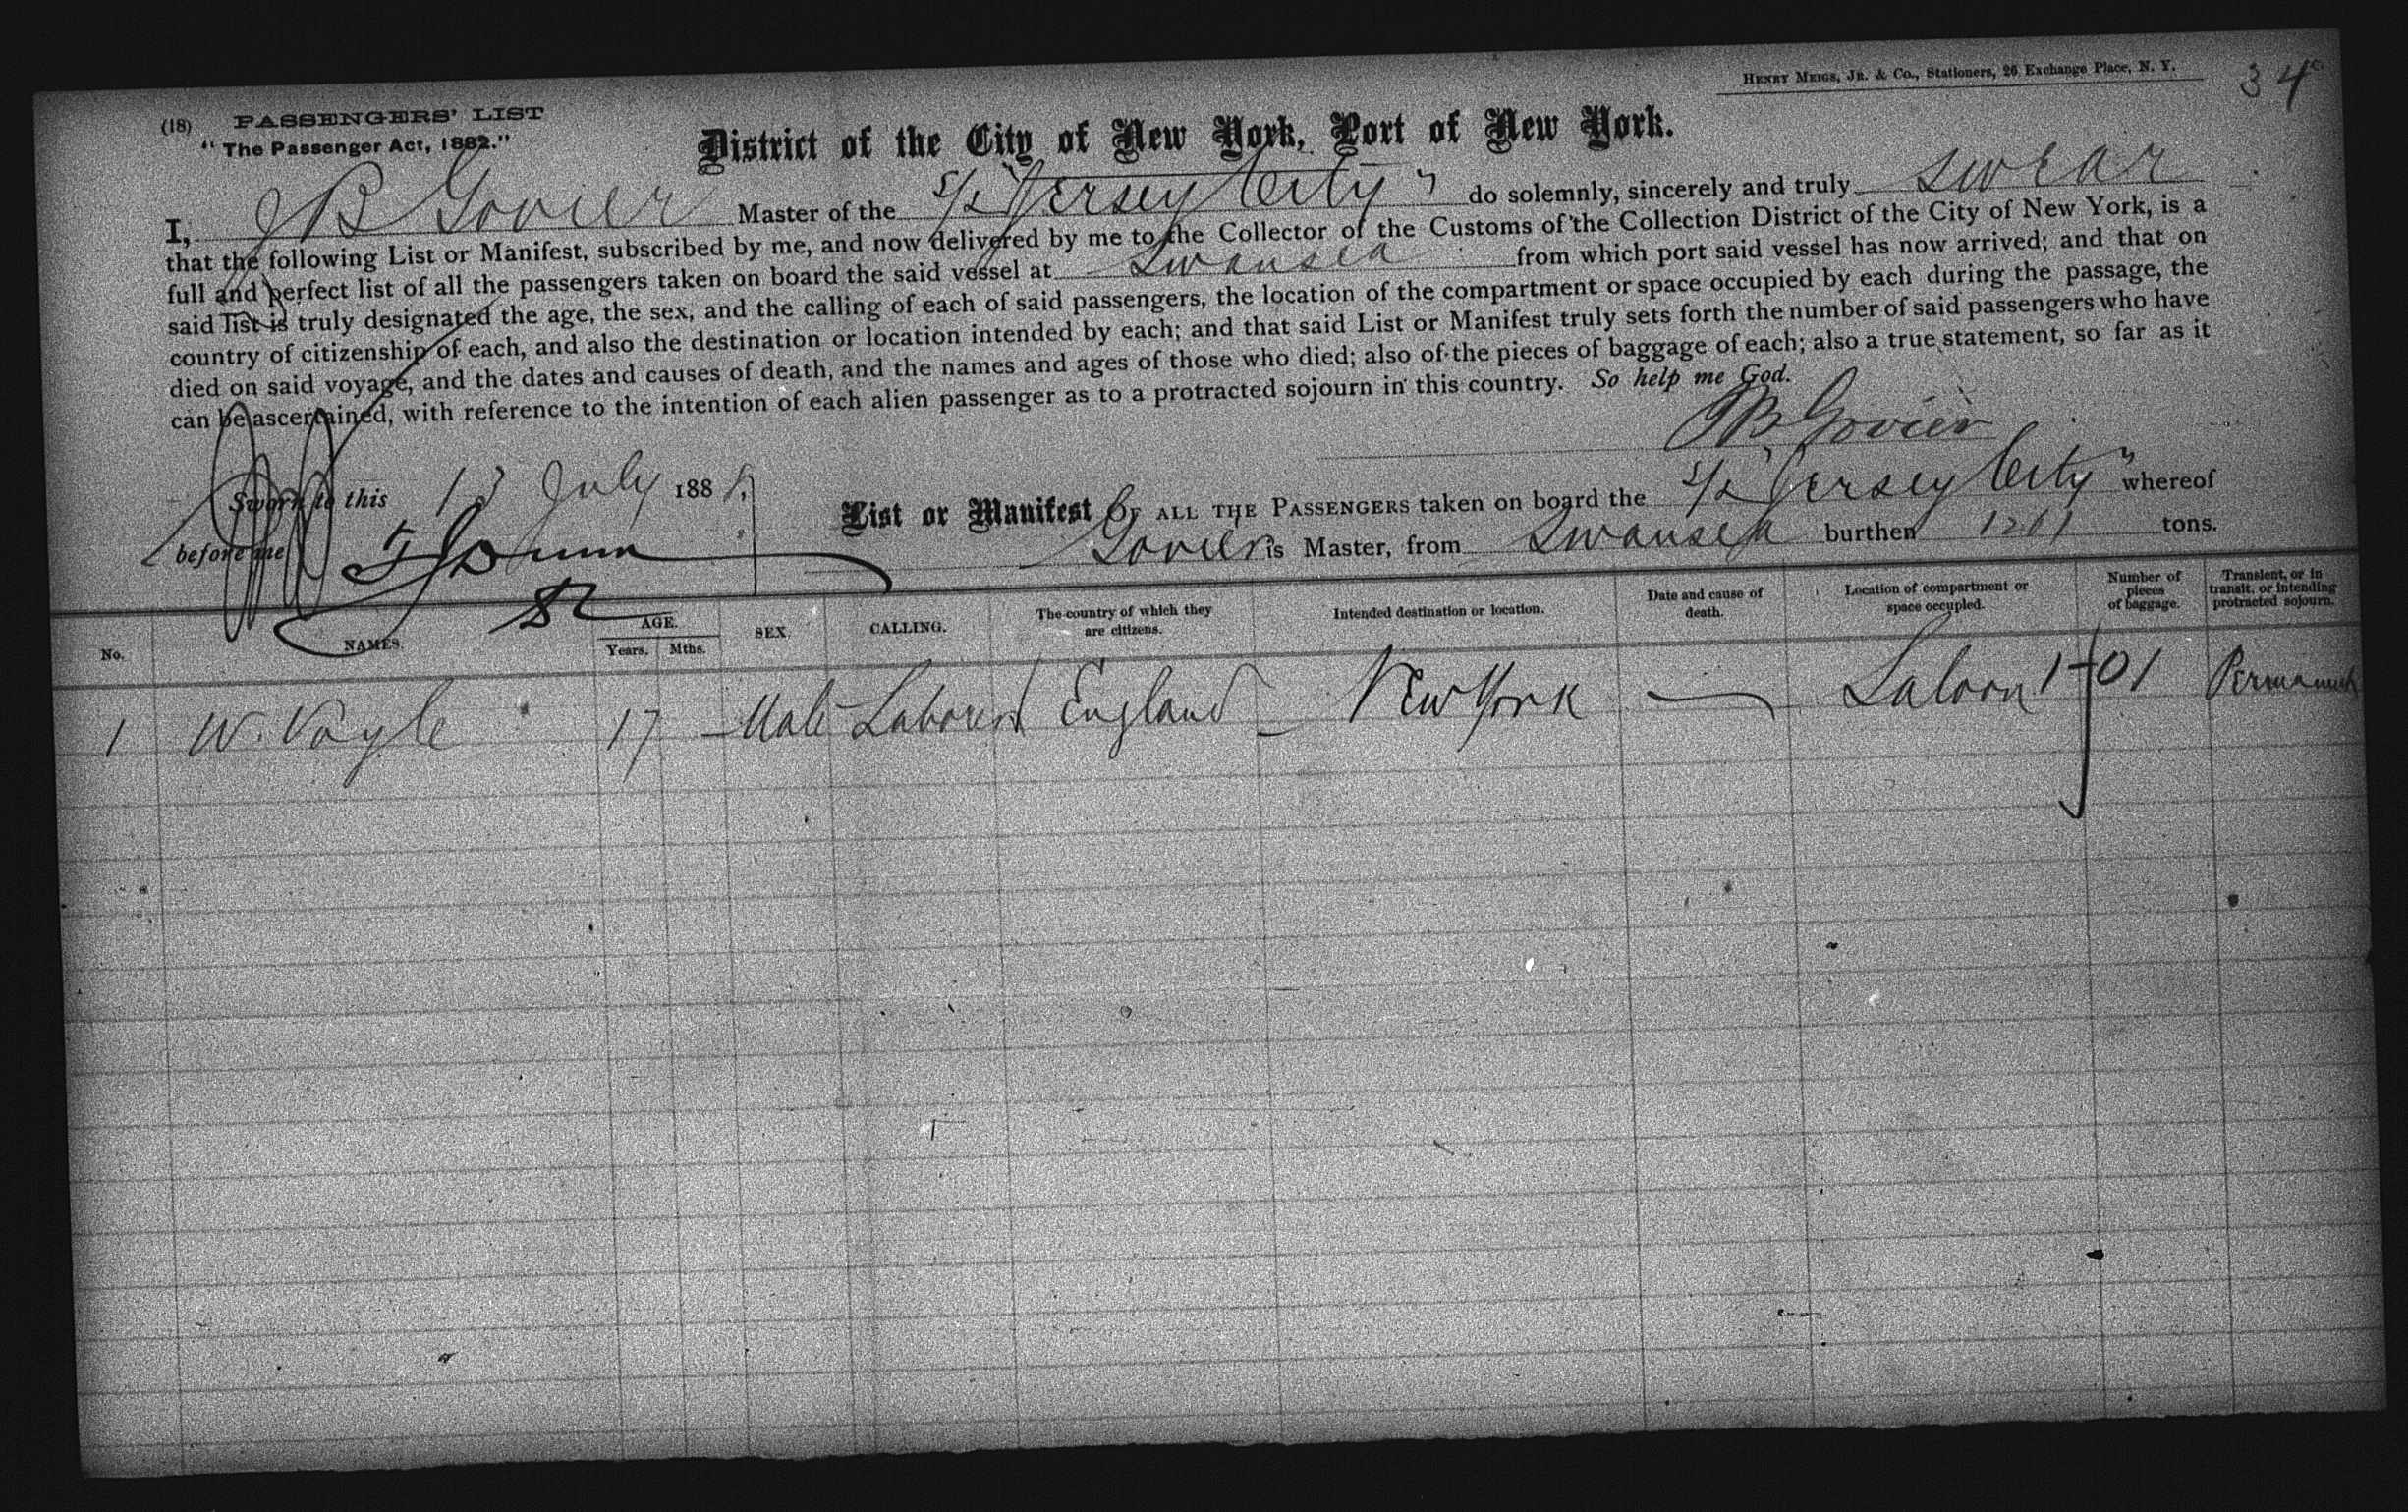 HENRY MEIGS, JR. & CO., Stationers, 26 Exchange Place, N. Y.
34
(18) PASSENGERS' LIST
"The Passenger Act, 1882."
District of the City of New York, Port of New York.
I, JB Govier Master of the S/S "Jersey City" do solemnly, sincerely and truly swear
that the following List or Manifest, subscribed by me, and now delivered by me to the Collector of the Customs of the Collection District of the City of New York, is a
full and perfect list of all the passengers taken on board the said vessel at Swansea from which port said vessel has now arrived; and that on
said list is truly designated the age, the sex, and the calling of each of said passengers, the location of the compartment or space occupied by each during the passage, the
country of citizenship of each, and also the destination or location intended by each; and that said List or Manifest truly sets forth the number of said passengers who have
died on said voyage, and the dates and causes of death, and the names and ages of those who died; also of the pieces of baggage of each; also a true statement, so far as it
can be ascertained, with reference to the intention of each alien passenger as to a protracted sojourn in this country. So help me God.
JB Govier
Sworn to this July 188
List or Manifest OF ALL THE PASSENGERS taken on board the S/S "Jersey City" whereof
before me
Govier is Master, from Swansea burthen 1201 tons.
No. NAMES. AGE. Years. Mths. SEX. CALLING. The country of which they are citizens. Intended destination or location. Date and cause of death. Location of compartment or space occupied. Number of pieces of baggage. Transient, or in transit, or intending protracted sojourn.
1 W. Voyle 17 Male Laborer England New York — Saloon 1 Permanent